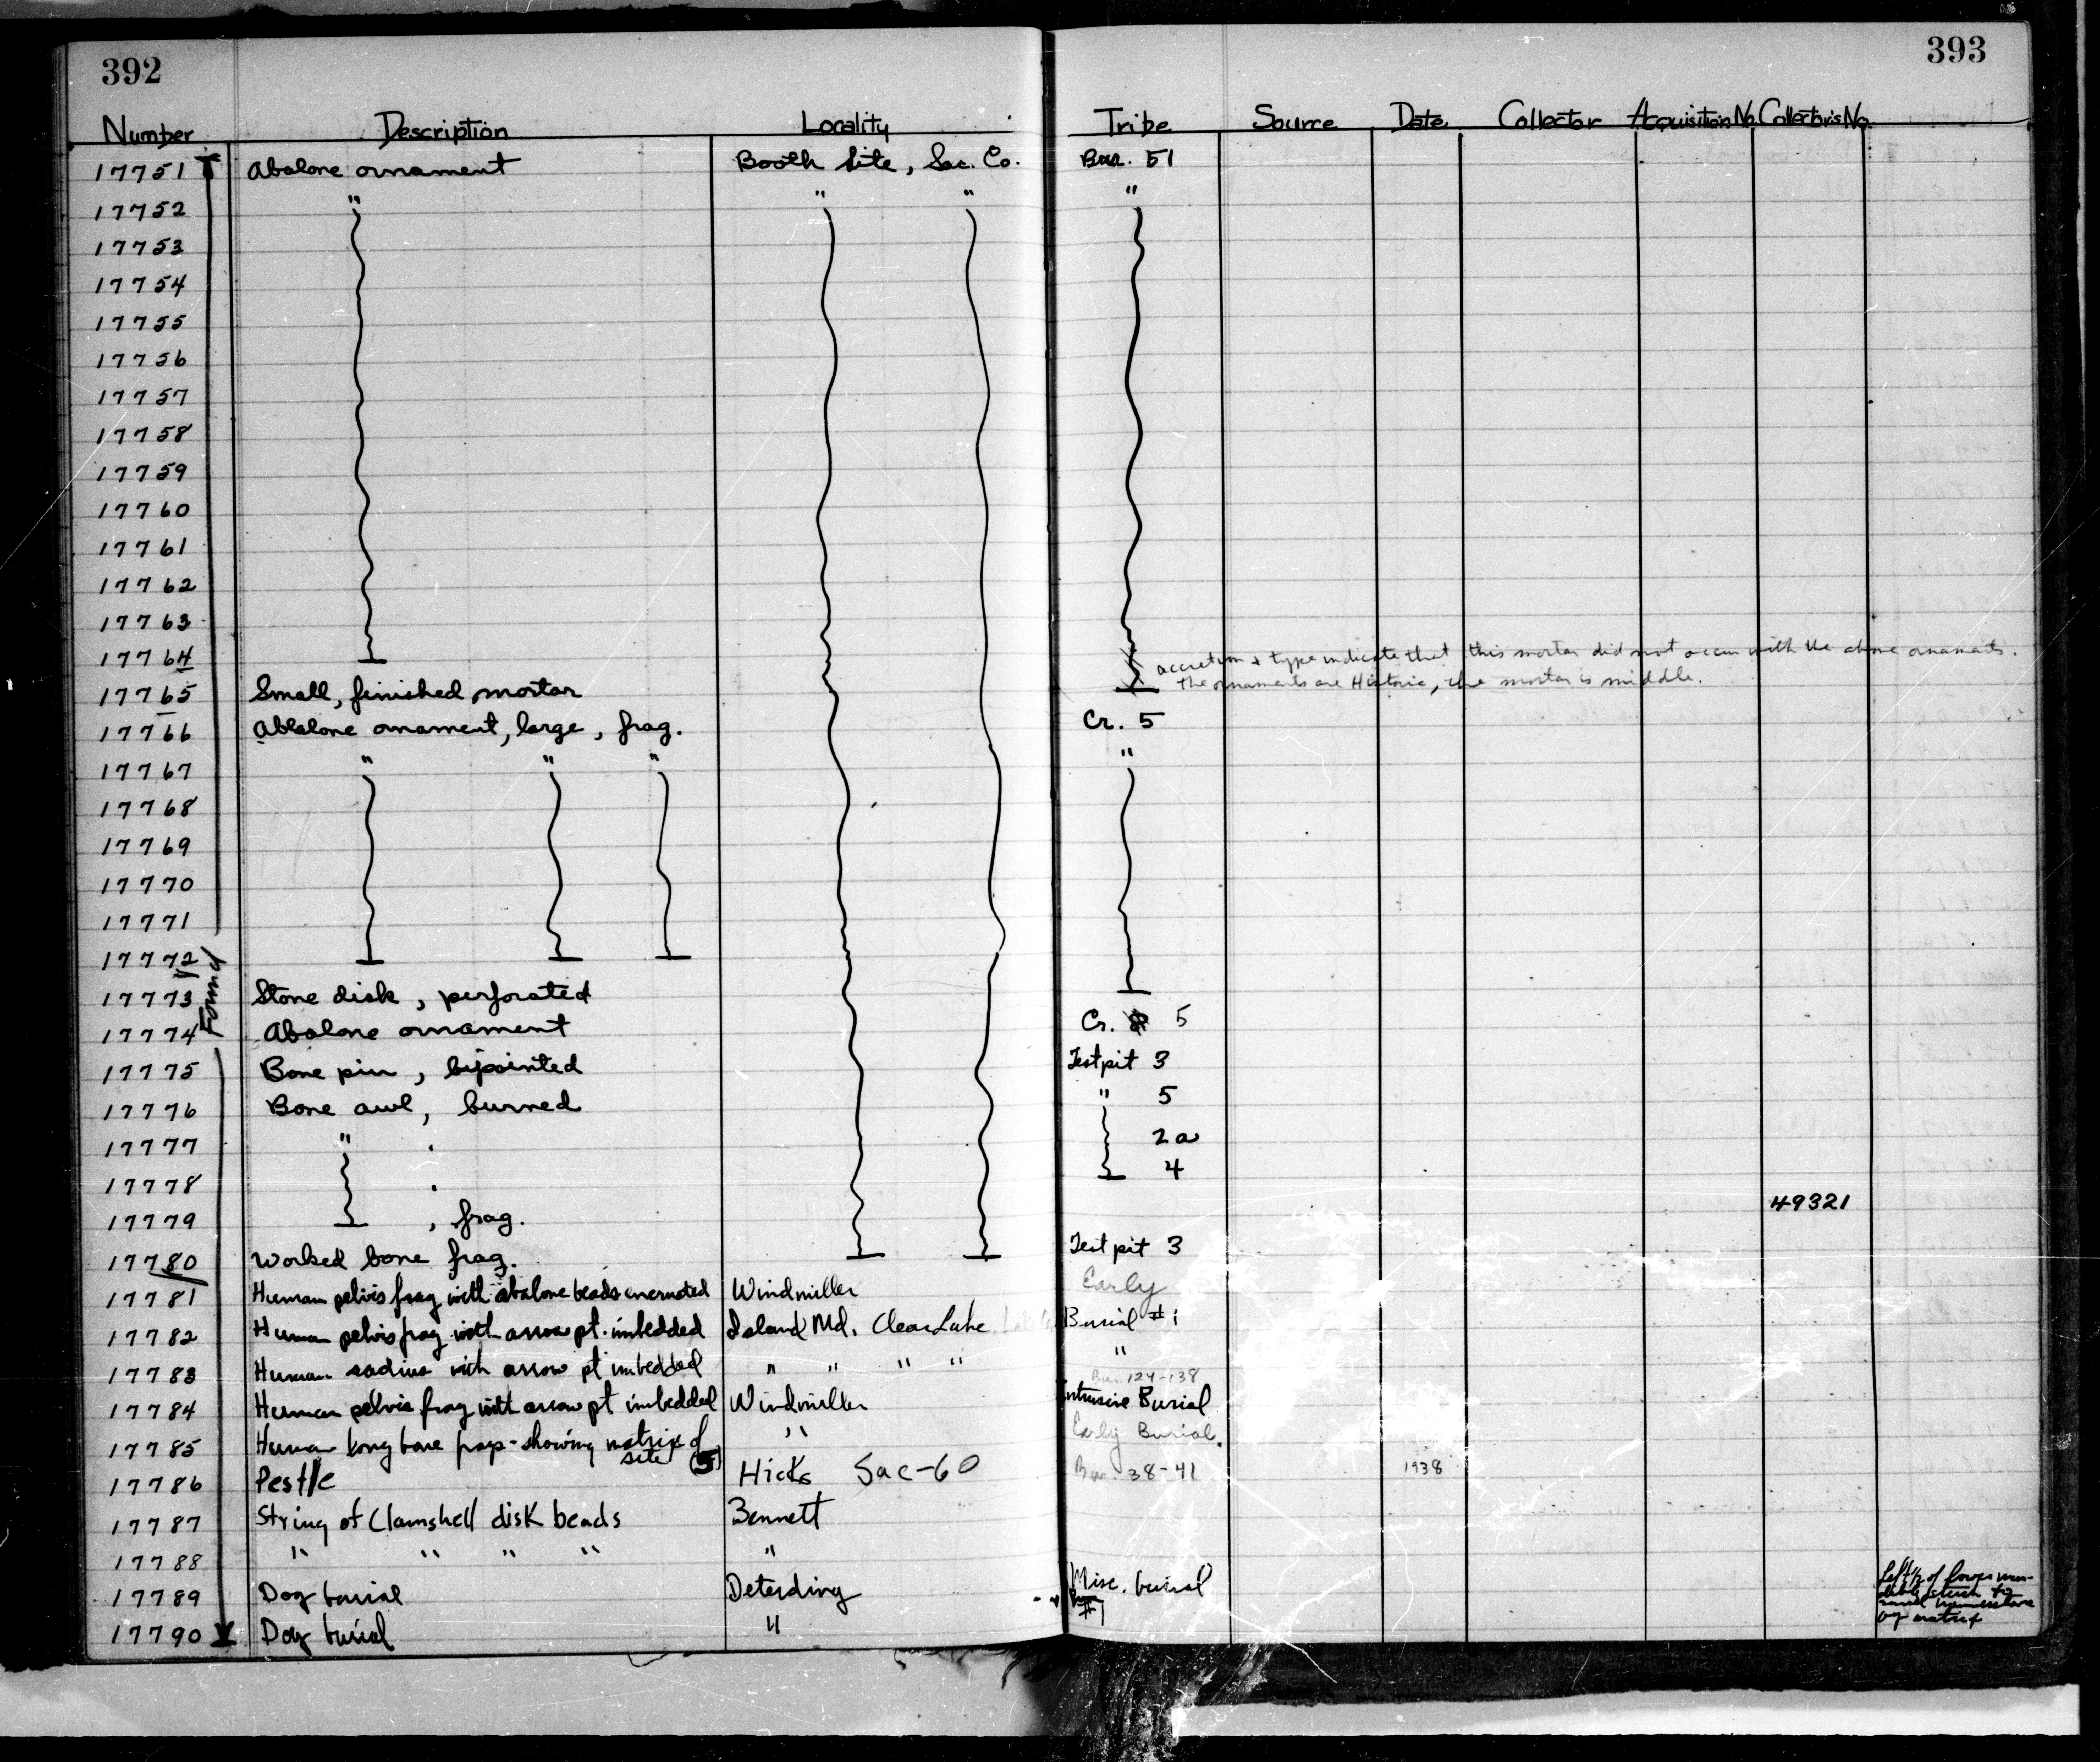 392
393
Number Description Locality Tribe Source Date Collector Acquisition No. Collector's No.
17751 Abalone ornament Booth Site, Sac. Co. Bur. 51
17752 " " " "
17753
17754
17755
17756
17757
17758
17759
17760
17761
17762
17763
17764 accretion & type indicate that this mortar did not occur with the above ornaments.
17765 Small, finished mortar The ornaments are Historic, the mortar is middle.
17766 Abalone ornament, large, frag. Cr. 5
17767 " " " "
17768
17769
17770
17771
17772
Found
17773 Stone disk, perforated
17774 Abalone ornament Cr. 5
17775 Bone pin, bipointed Test pit 3
17776 Bone awl, burned " 5
17777 " 2a
17778 4
17779 , frag. 49321
17780 Worked bone frag. Test pit 3
17781 Human pelvis frag with abalone beads encrusted Windmiller Early
17782 Human pelvis frag with arrow pt. imbedded Island Md, Clear Lake, Burial #1
17783 Human radius with arrow pt imbedded " " " " "
Bur. 124-138
17784 Human pelvis frag with arrow pt imbedded Windmiller Intrusive Burial
17785 Human long bone frags - showing matrix of site (5) " Early Burial.
17786 Pestle Hicks Sac-60 Bur. 38-41 1938
17787 String of Clamshell disk beads Bennett
17788 " " " " "
17789 Dog burial Deterding Misc. burial
#1
17790 Dog burial "
Left ½ of lower man-
dible stuck to
of matrix